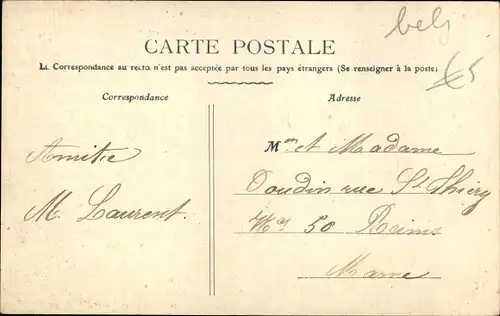 belg
CARTE POSTALE
La Correspondance au recto n'est pas acceptée par tous les pays étrangers (Se renseigner à la poste)
€5
Correspondance
Adresse
Amitié
M. Laurent.
Mon et Madame
Doudin rue St Thiéry
No 50 Reims
Marne